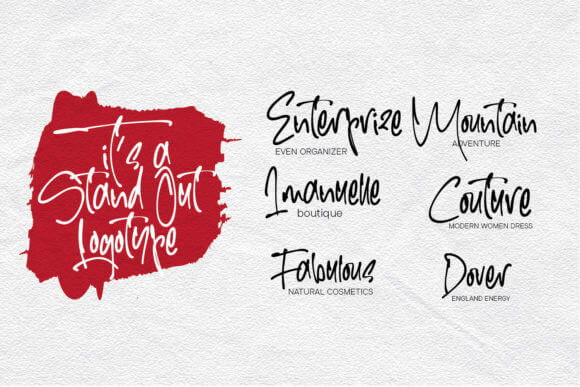 it's a
Stand Out
Logotype
Enterprize
EVEN ORGANIZER
Mountain
ADVENTURE
Imanuelle
boutique
Couture
MODERN WOMEN DRESS
Fabulous
NATURAL COSMETICS
Dover
ENGLAND ENERGY